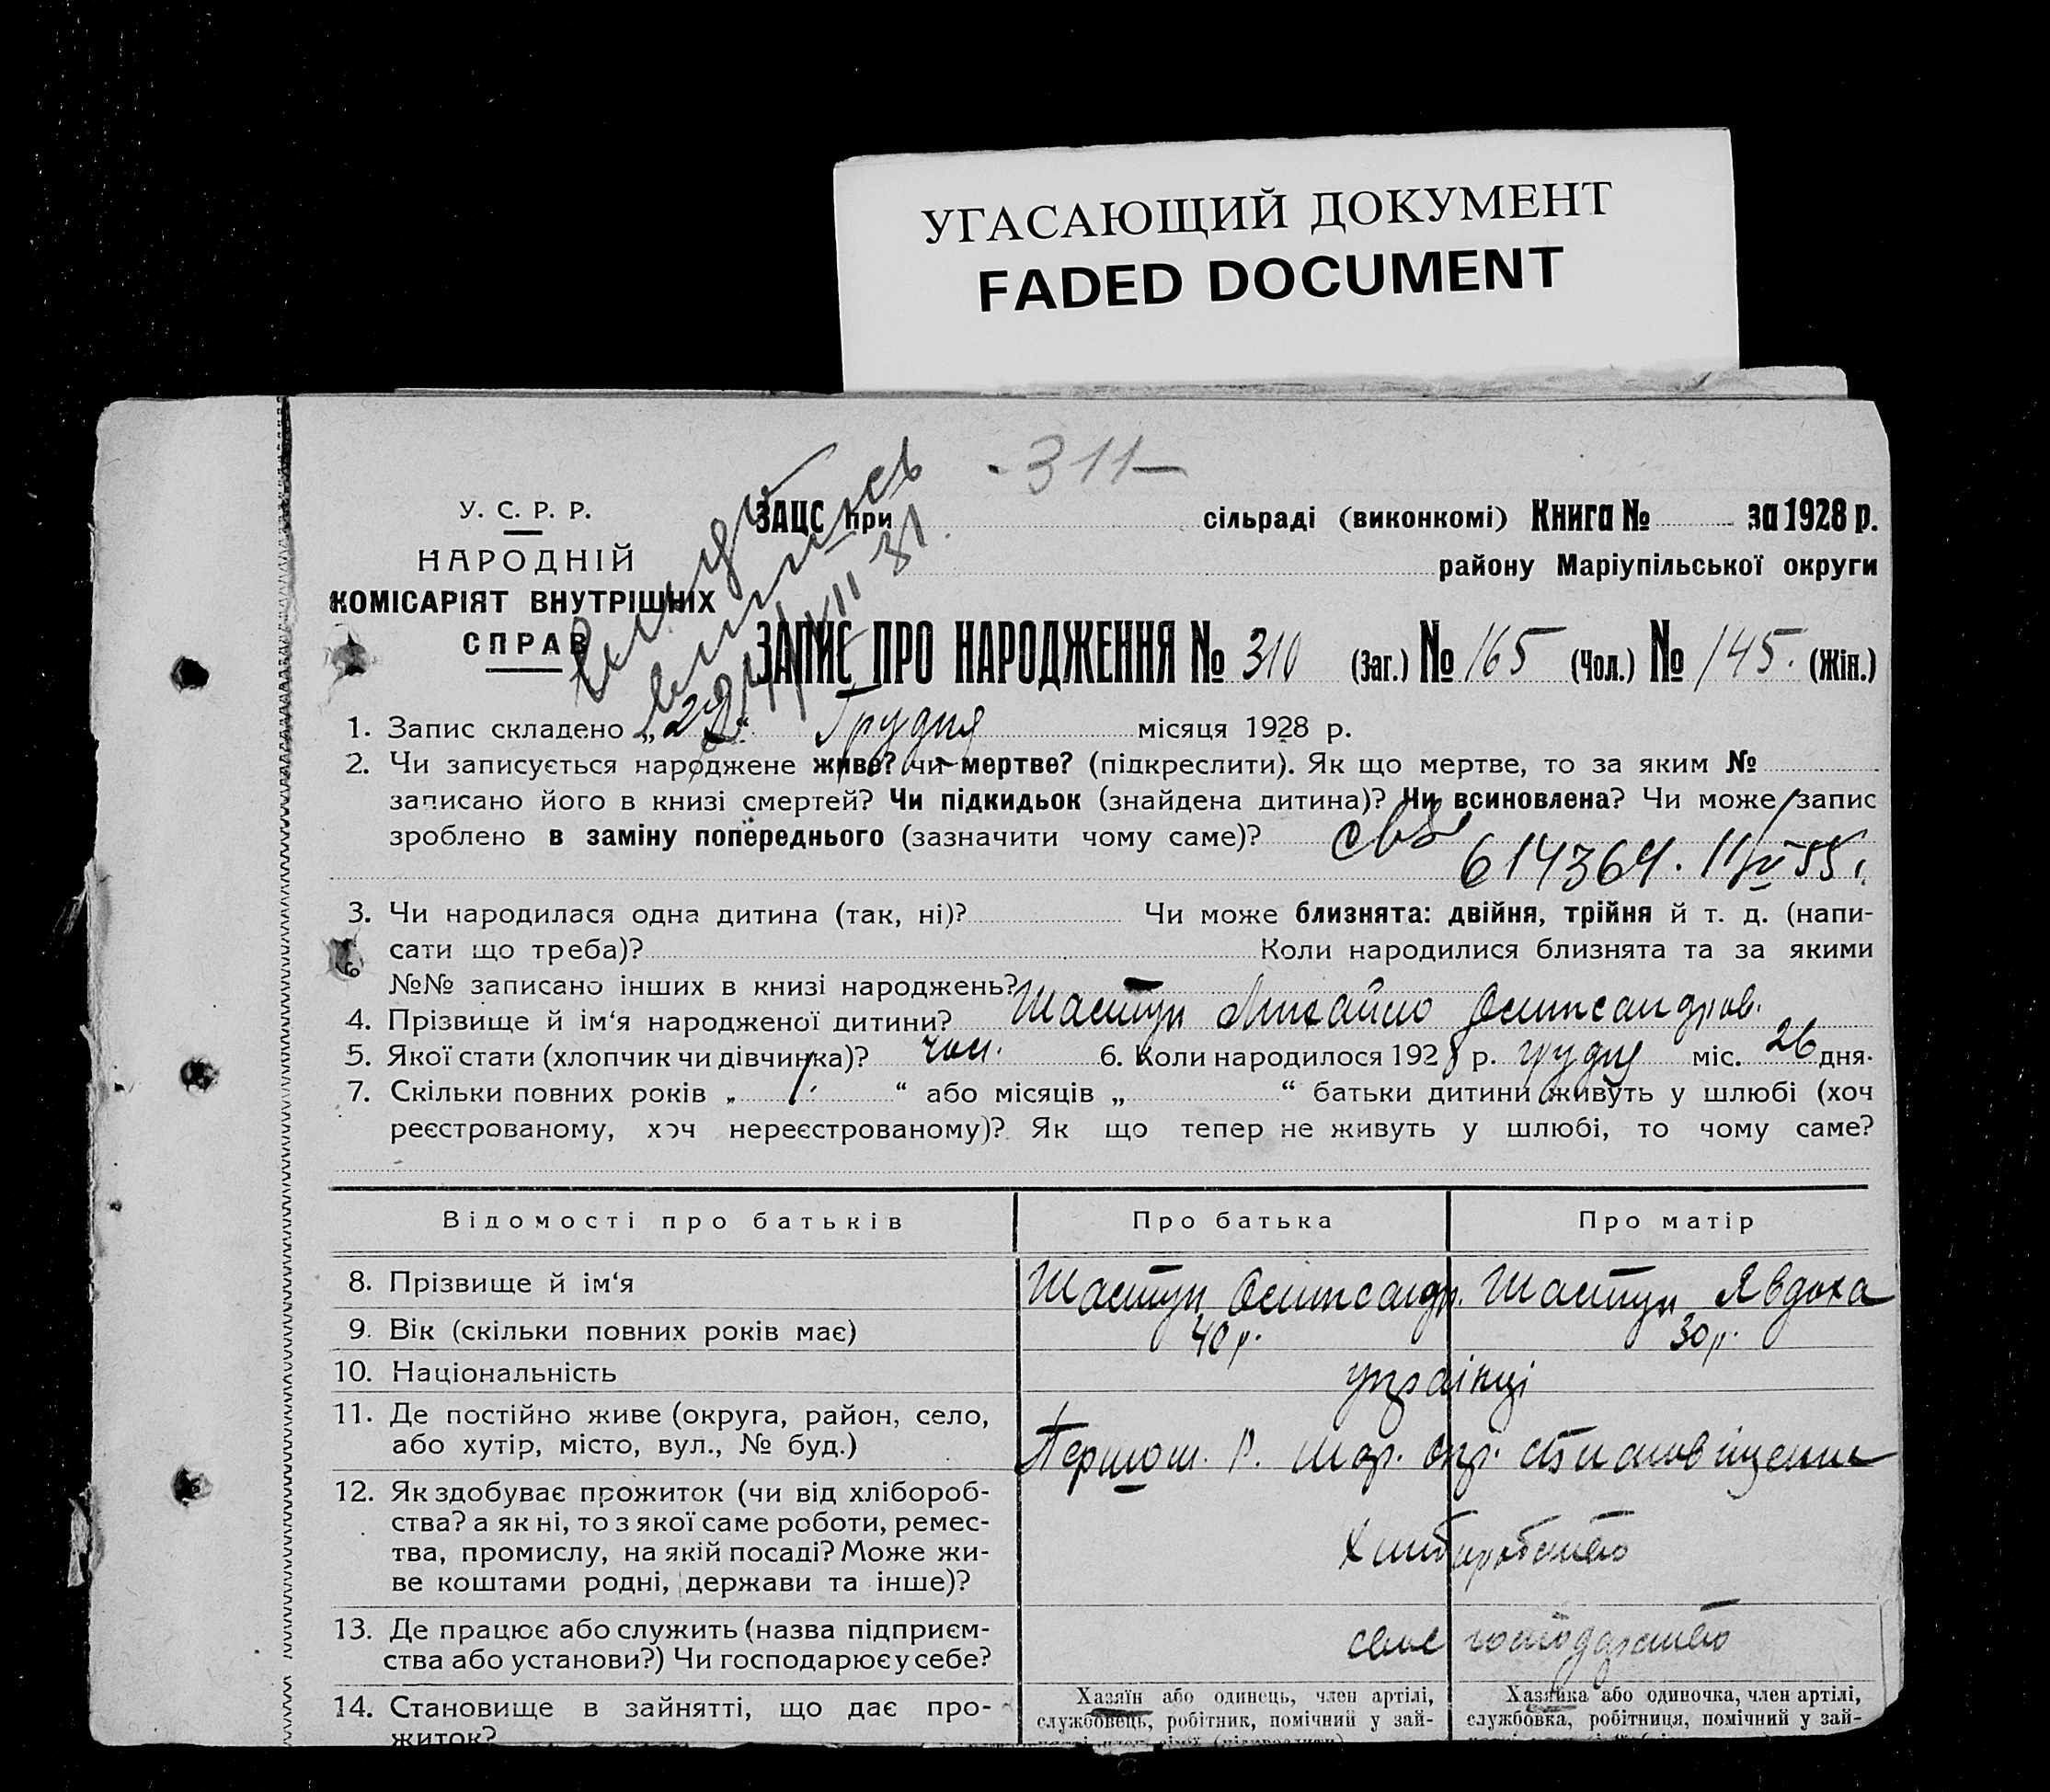 УГАСАЮЩИЙ ДОКУМЕНТ
FADED DOCUMENT
-311-
У. С. Р. Р.
НАРОДНІЙ
КОМІСАРІЯТ ВНУТРІШНІХ
СПРАВ
ЗАЦС при сільраді (виконкомі) Книга № за 1928 р.
району Маріупільської округи
ЗАПИС ПРО НАРОДЖЕННЯ № 310 (Заг.) № 165 (Чол.) № 145. (Жін.)
1. Запис складено „ “ Грудня місяця 1928 р.
2. Чи записується народжене живе? чи мертве? (підкреслити). Як що мертве, то за яким №
записано його в книзі смертей? Чи підкидьок (знайдена дитина)? Чи всиновлена? Чи може запис
зроблено в заміну попереднього (зазначити чому саме)? свв
614364. 11/V 55 г.
3. Чи народилася одна дитина (так, ні)? Чи може близнята: двійня, трійня й т. д. (напи-
сати що треба)? Коли народилися близнята та за якими
№№ записано інших в книзі народжень?
4. Прізвище й ім‘я народженої дитини? Шастун Михайло Олександров.
5. Якої стати (хлопчик чи дівчинка)? чол. 6. Коли народилося 1928 р. грудня міс. 26 дня.
7. Скільки повних років „ 1. “ або місяців „ “ батьки дитини живуть у шлюбі (хоч
реєстрованому, хоч нереєстрованому)? Як що тепер не живуть у шлюбі, то чому саме?
Відомості про батьків Про батька Про матір
8. Прізвище й ім‘я Шастун Олександр. Шастун Явдоха
9. Вік (скільки повних років має) 40 р. 30 р.
10. Національність українці
11. Де постійно живе (округа, район, село,
або хутір, місто, вул., № буд.) Першот. Р. Мар. окр.
12. Як здобуває прожиток (чи від хлібороб-
ства? а як ні, то з якої саме роботи, ремес-
тва, промислу, на якій посаді? Може жи-
ве коштами родні, держави та інше)? Хліборобство
13. Де працює або служить (назва підприєм-
ства або установи?) Чи господарює у себе? сельс господарство
14. Становище в зайнятті, що дає про-
житок?
Хазяїн або одинець, член артілі,
службовець, робітник, помічний у зай-
Хазяйка або одиночка, член артілі,
службовка, робітниця, помічний у зай-